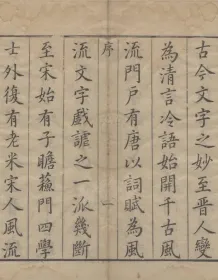 古今文字之妙至晉人變
為清言冷語始開千古風
流門戶有唐以詞賦為風
序
一
流文字戲謔之一派幾斷
至宋始有子瞻蘓門四學
士外復有老米宋人風流